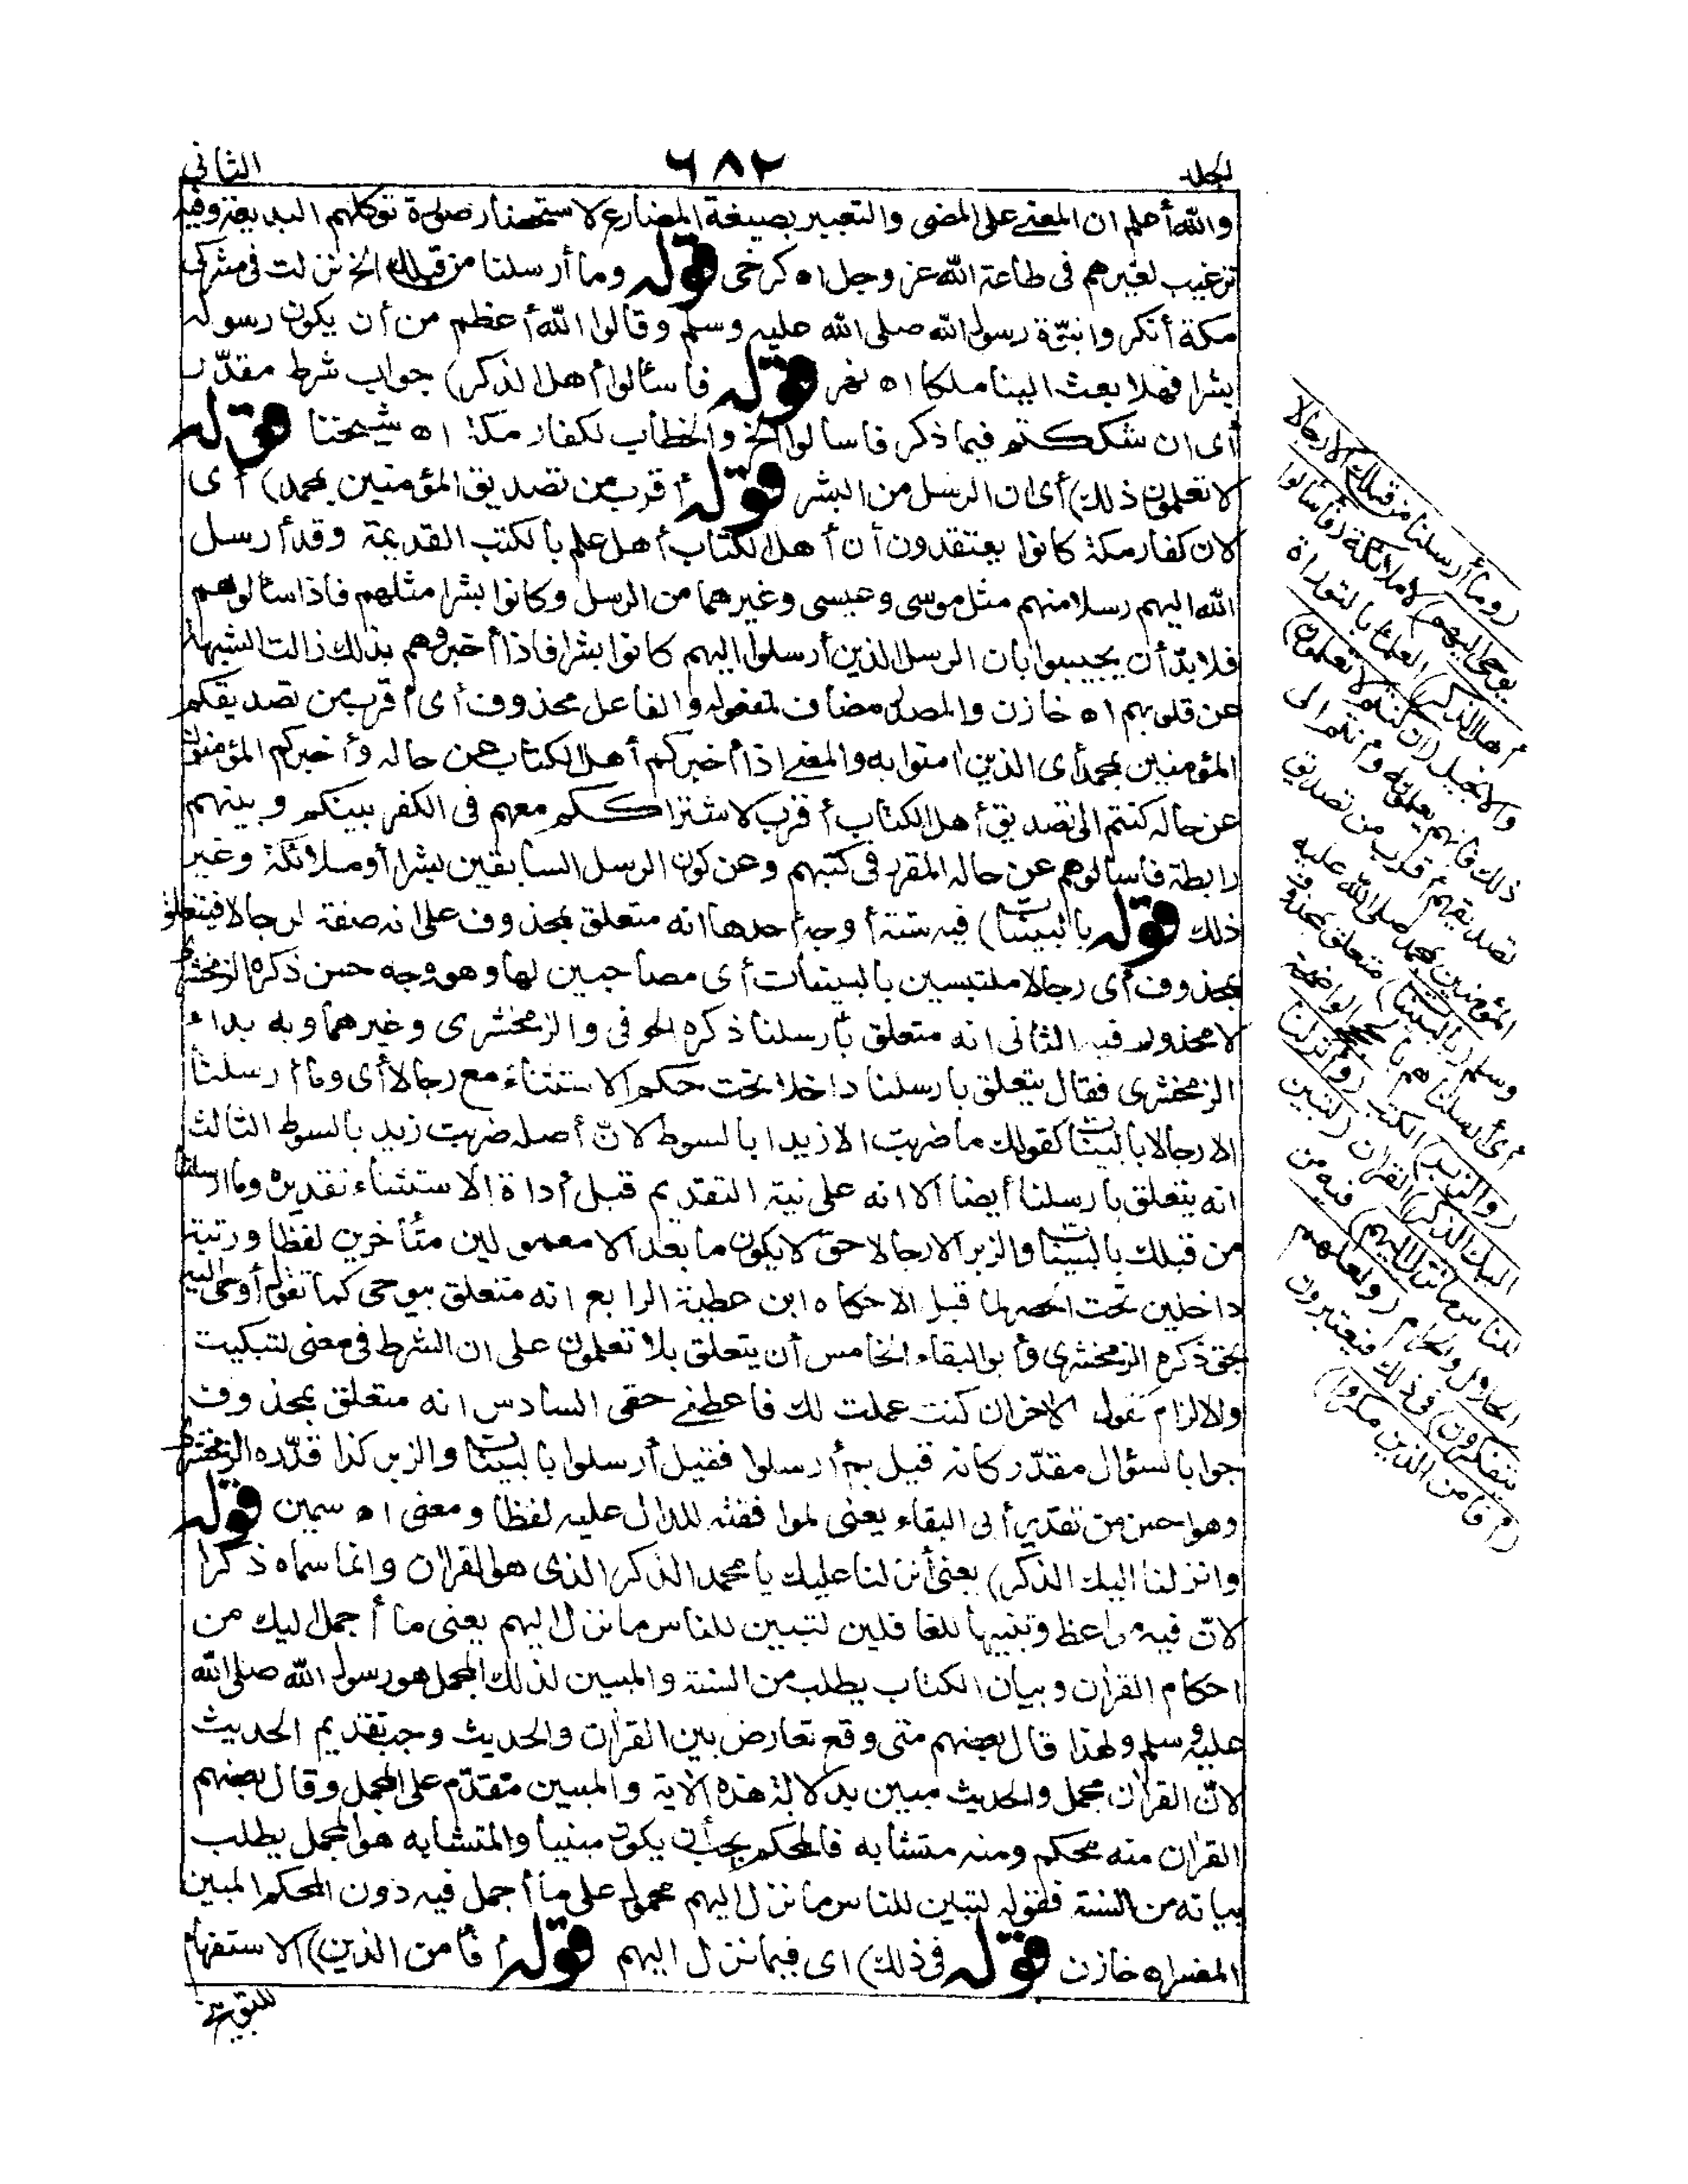 الجلد
٦٨٢
الثانى
والله أعلم ان المعنى على المضى والتعبير بصيغة المضارع لاستحضار صورة توكلهم البديعة وفيه
ترغيب لغيرهم فى طاعة الله عز وجل اه كرخى قوله وما أرسلنا من قبلك الخ نزلت فى مشركى
مكة أنكروا نبوّة رسول الله صلى الله عليه وسلم وقالوا الله أعظم من أن يكون رسوله
بشرا فهلا بعث الينا ملكا اه نهر قوله فاسئالوا أهل الذكر) جواب شرط مقدّر
أى ان شككتم فيما ذكر فاسالوا الخ والخطاب لكفار مكة اه شيخنا قوله
لا تعلمون ذلك) أى ان الرسل من البشر قوله أقرب من تصديق المؤمنين بمحمد) أى
لان كفار مكة كانوا يعتقدون أن أهل الكتاب أهل علم بالكتب القديمة وقد أرسل
الله اليهم رسلا منهم مثل موسى وعيسى وغيرهما من الرسل وكانوا بشرا مثلهم فاذا سئالوهم
فلا بدّ أن يجيبوا بان الرسل الذين أرسلوا اليهم كانوا بشرا فاذا أخبروهم بذلك زالت الشبهة
عن قلوبهم اه خازن والمصدر مضاف لمفعوله والفاعل محذوف أى أقرب من تصديقكم
المؤمنين بمحمد أى الذين امنوا به والمعنى اذا أخبركم أهل الكتاب عن حاله وأخبركم المؤمنون
عن حاله كنتم الى تصديق أهل الكتاب أقرب لاشتراككم معهم فى الكفر بينكم وبينهم
رابطة فاسألوهم عن حاله المقرر فى كتبهم وعن كون الرسل السابقين بشرا أو ملائكة وغير
ذلك قوله بالبينات) فيه ستة أوجه أحدها انه متعلق بمحذوف على انه صفة لرجالا فيتعلق
بمحذوف أى رجالا ملتبسين بالبينات أى مصاحبين لها وهو وجه حسن ذكره الزمخشرى
لا محذور فيه الثانى انه متعلق بأرسلنا ذكره الحوفى والزمخشرى وغيرهما وبه بداء
الزمخشرى فقال يتعلق بارسلنا داخلا تحت حكم الاستثناء مع رجالا أى وما أرسلنا
الا رجالا بالبينات كقولك ما ضربت الا زيدا بالسوط لانّ أصله ضربت زيد بالسوط الثالث
انه يتعلق بأرسلنا أيضا الا انه على نية التقديم قبل أداة الاستثناء تقديره وما ارسلنا
من قبلك بالبينات والزبر الا رجالا حتى لا يكون ما بعد الا معمولين متأخرين لفظا ورتبة
داخلين تحت الحصر لما قبل الا حكاه ابن عطية الرابع انه متعلق بيوحى كما تقول أوحى اليه
بحق ذكره الزمخشرى وأبو البقاء الخامس أن يتعلق بلا تعلمون على ان الشرط فى معنى لتبكيت
ولالزام كقول الاخر ان كنت عملت لك فاعطنى حقى السادس انه متعلق بمحذوف
جوابا لسؤال مقدّر كانه قيل بم أرسلوا فقيل أرسلوا بالبينات والزبر كذا قدّره الزمخشرى
وهو احسن من تقدير أبى البقاء يعنى لموافقته للدال عليه لفظا ومعنى اه سمين قوله
وانزلنا اليك الذكر) يعنى أنزلنا عليك يا محمد الذكر الذى هو القرآن وانما سماه ذكرا
لانّ فيه مواعظ وتنبيها للغافلين لتبين للناس ما نزل اليهم يعنى ما أجمل اليك من
احكام القرآن وبيان الكتاب يطلب من السنة والمبين لذلك المجمل هو رسول الله صلى الله
عليه وسلم ولهذا قال بعضهم متى وقع تعارض بين القرآن والحديث وجب تقديم الحديث
لانّ القرآن مجمل والحديث مبين بدلالة هذه الاية والمبين متقدّم على المجمل وقال بعضهم
القرآن منه محكم ومنه متشابه فالمحكم يجب أن يكون مبنيا والمتشابه هو المجمل يطلب
بيانه من السنة فقوله لتبين للناس ما نزل اليهم محمول على ما أجمل فيه دون المحكم المبين
المفسر اه خازن قوله فى ذلك) اى فيما نزل اليهم قوله أفأمن الذين) الاستفهام
(وما أرسلنا من قبلك الا رجالا
يوحى اليهم) لا ملائكة (فاسألوا
أهل الذكر) العلماء بالتوراة
والانجيل (ان كنتم لا تعلمون)
ذلك فانهم يعلمونه وأنتم الى
تصديقهم أقرب من تصديق
المؤمنين بمحمد صلى الله عليه
وسلم (بالبينات) متعلق بمحذوف
أى أرسلناهم بالحجج الواضحة
(والزبر) الكتب (وأنزلنا
اليك الذكر) القرآن (لتبين
للناس ما نزل اليهم) فيه من
الحلال والحرام (ولعلهم
يتفكرون) فى ذلك فيعتبرون
(أفأمن الذين مكروا)